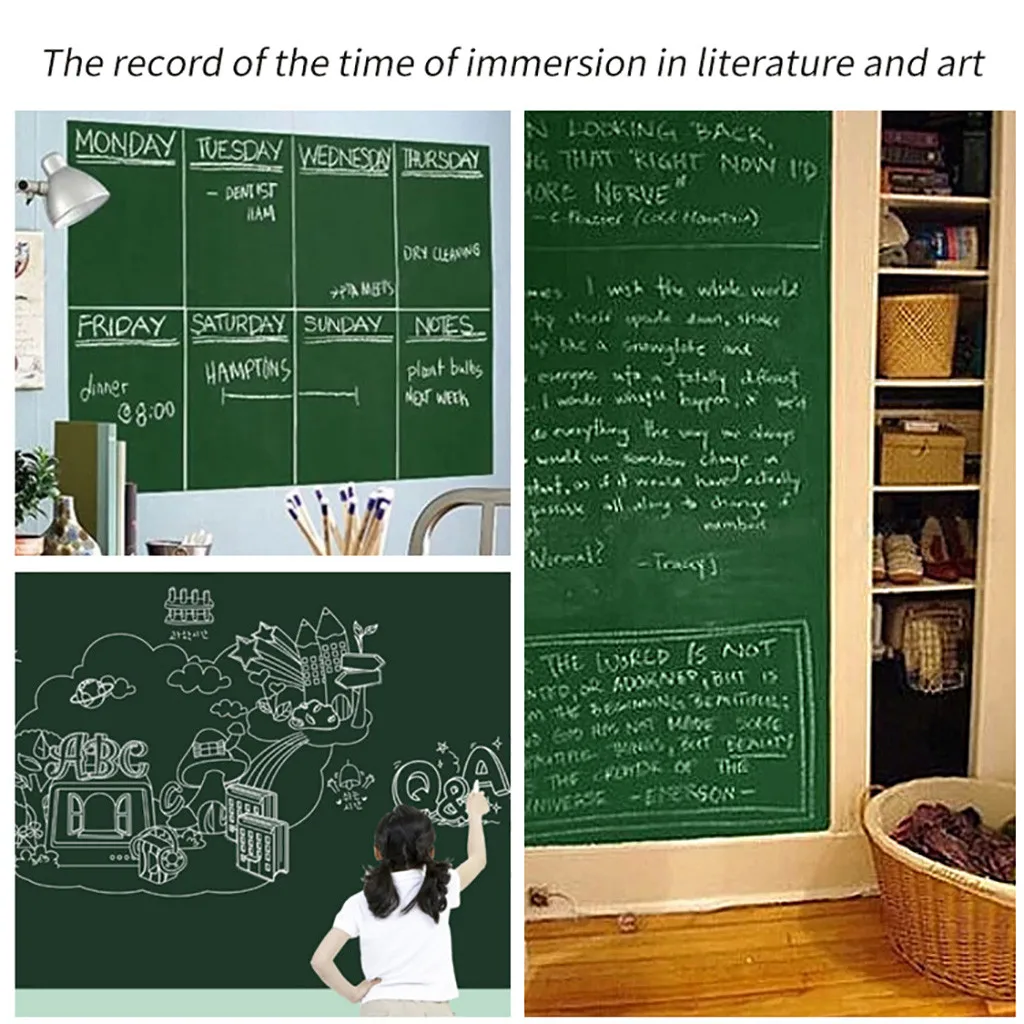 The record of the time of immersion in literature and art
MONDAY
TUESDAY
- DENTIST
11AM
WEDNESDAY
→PTA MEETS
THURSDAY
DRY CLEANING
FRIDAY
dinner
@ 8:00
SATURDAY
HAMPTONS
SUNDAY
NOTES
plant bulbs
NEXT WEEK
N LOOKING BACK,
G THAT "RIGHT NOW I'D
ORE NERVE"
I wish the whole world
upside down, shake
a snowglobe and
everyone a totally different
I wonder happen, if we'd
do everything the way we always
would we somehow change in
as if it would have actually
possible all along to change
numbers
Normal?
- Tracy J
THE WORLD IS NOT
OR ADORNED, BUT IS
THE BEGINNING BEAUTIFUL;
GOD HAS NOT MADE SOME
THINGS, BUT BEAUTY
THE OF THE
UNIVERSE - EMERSON -
ABC
Q&A